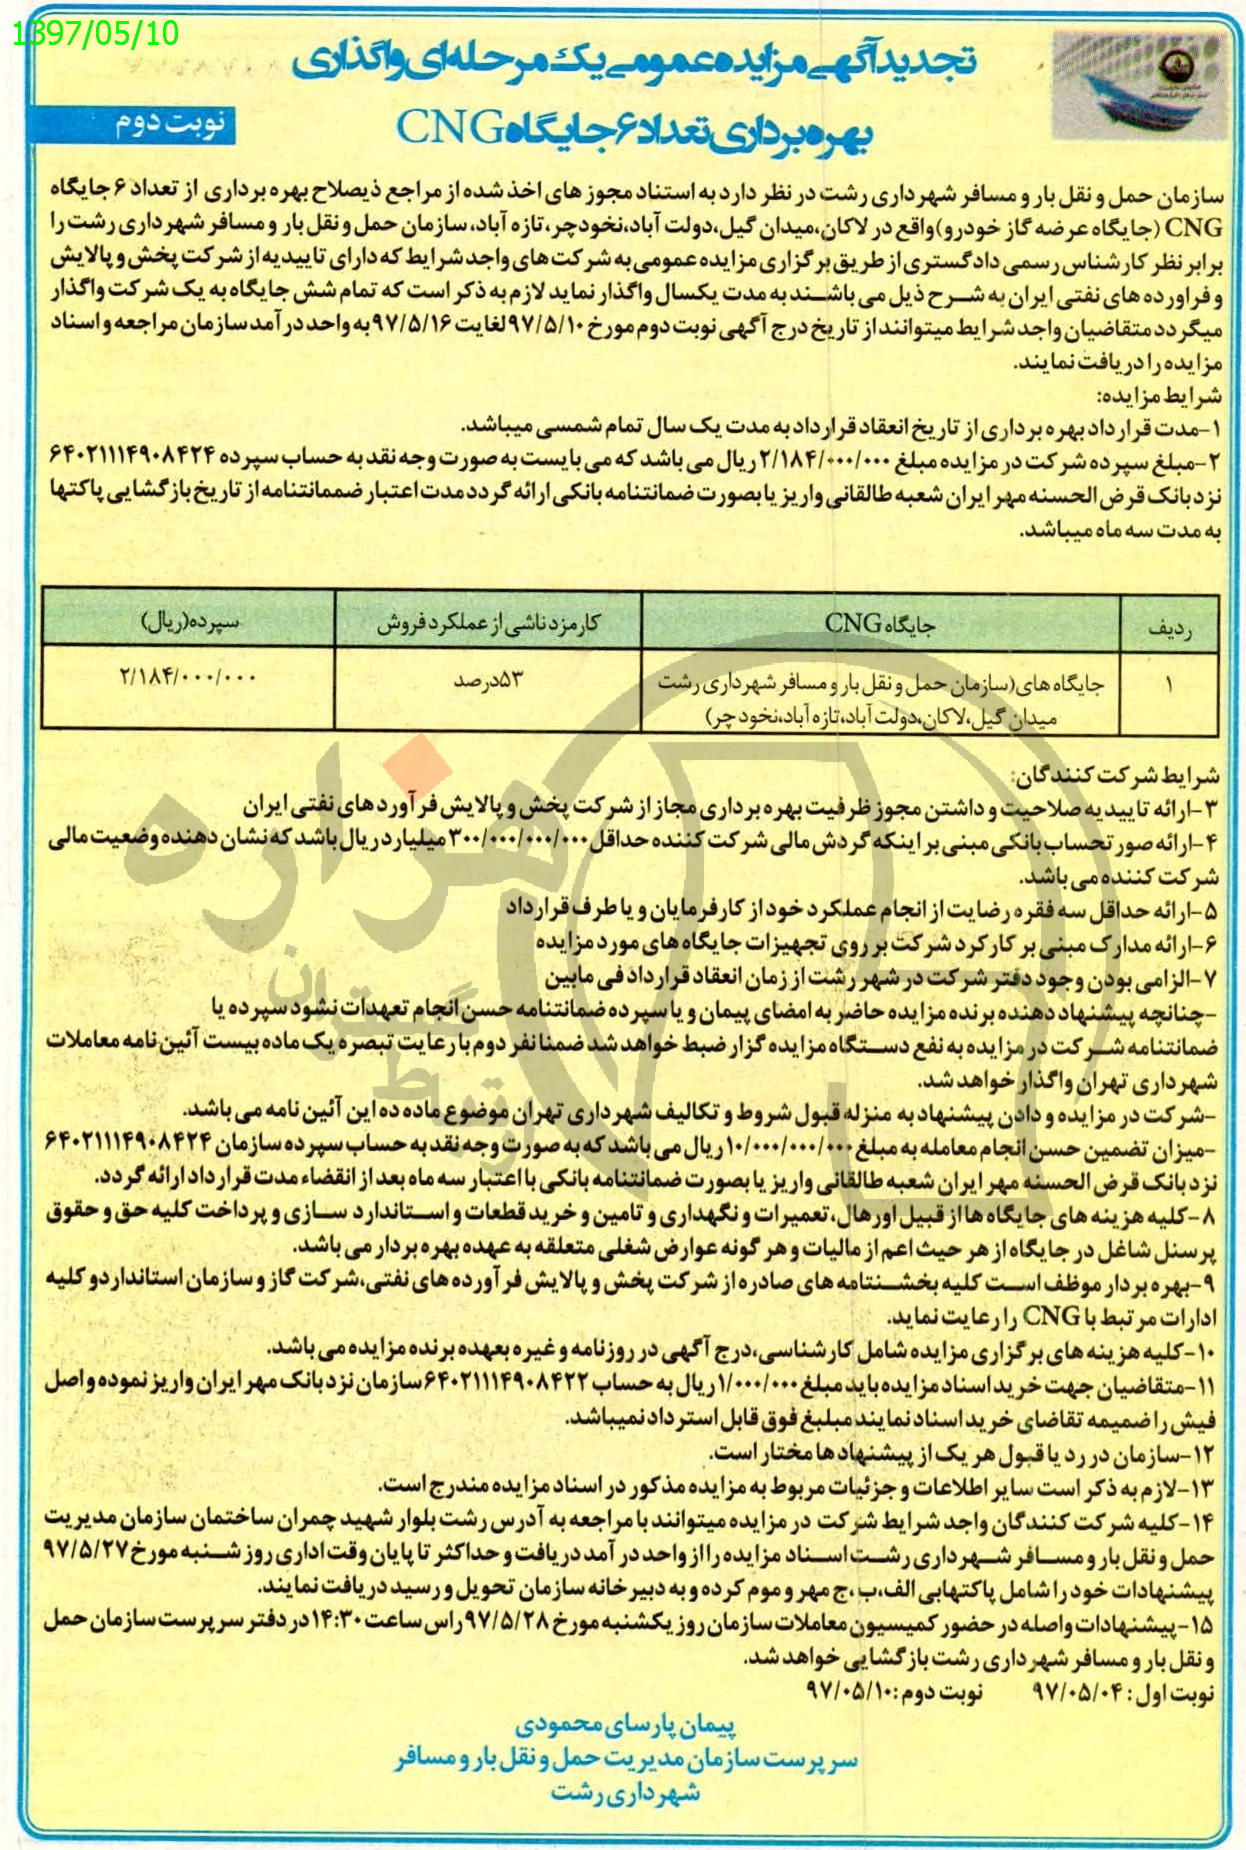 1397/05/10
تجدید آگهی مزایده عمومی یک مرحله ای واگذاری
بهره برداری تعداد ۶ جایگاه CNG
نوبت دوم
سازمان حمل و نقل بار و مسافر شهرداری رشت در نظر دارد به استناد مجوز های اخذ شده از مراجع ذیصلاح بهره برداری از تعداد ۶ جایگاه
CNG (جایگاه عرضه گاز خودرو) واقع در لاکان،میدان گیل،دولت آباد،نخودچر،تازه آباد، سازمان حمل و نقل بار و مسافر شهرداری رشت را
برابر نظر کارشناس رسمی دادگستری از طریق برگزاری مزایده عمومی به شرکت های واجد شرایط که دارای تاییدیه از شرکت پخش و پالایش
و فراورده های نفتی ایران به شرح ذیل می باشند به مدت یکسال واگذار نماید لازم به ذکر است که تمام شش جایگاه به یک شرکت واگذار
میگردد متقاضیان واجد شرایط میتوانند از تاریخ درج آگهی نوبت دوم مورخ ۹۷/۵/۱۰ لغایت ۹۷/۵/۱۶ به واحد در آمد سازمان مراجعه و اسناد
مزایده را دریافت نمایند.
شرایط مزایده:
۱-مدت قرارداد بهره برداری از تاریخ انعقاد قرارداد به مدت یک سال تمام شمسی میباشد.
۲-مبلغ سپرده شرکت در مزایده مبلغ ۲/۱۸۴/۰۰۰/۰۰۰ ریال می باشد که می بایست به صورت وجه نقد به حساب سپرده ۶۴۰۲۱۱۱۴۹۰۸۴۲۴
نزد بانک قرض الحسنه مهر ایران شعبه طالقانی واریز یا بصورت ضمانتنامه بانکی ارائه گردد مدت اعتبار ضممانتنامه از تاریخ بازگشایی پاکتها
به مدت سه ماه میباشد.
ردیف جایگاه CNG کارمزد ناشی از عملکرد فروش سپرده(ریال)
۱ جایگاه های(سازمان حمل و نقل بار و مسافر شهرداری رشت ۵۳درصد ۲/۱۸۴/۰۰۰/۰۰۰
میدان گیل،لاکان،دولت آباد،تازه آباد،نخود چر)
شرایط شرکت کنندگان:
۳-ارائه تاییدیه صلاحیت و داشتن مجوز ظرفیت بهره برداری مجاز از شرکت پخش و پالایش فرآورد های نفتی ایران
۴-ارائه صور تحساب بانکی مبنی بر اینکه گردش مالی شرکت کننده حداقل ۳۰۰/۰۰۰/۰۰۰/۰۰۰ میلیارد ریال باشد که نشان دهنده وضعیت مالی
شرکت کننده می باشد.
۵-ارائه حداقل سه فقره رضایت از انجام عملکرد خود از کارفرمایان و یا طرف قرارداد
۶-ارائه مدارک مبنی بر کارکرد شرکت بر روی تجهیزات جایگاه های مورد مزایده
۷-الزامی بودن وجود دفتر شرکت در شهر رشت از زمان انعقاد قرارداد فی مابین
-چنانچه پیشنهاد دهنده برنده مزایده حاضر به امضای پیمان و یا سپرده ضمانتنامه حسن انجام تعهدات نشود سپرده یا
ضمانتنامه شرکت در مزایده به نفع دستگاه مزایده گزار ضبط خواهد شد ضمنا نفر دوم با رعایت تبصره یک ماده بیست آئین نامه معاملات
شهرداری تهران واگذار خواهد شد.
-شرکت در مزایده و دادن پیشنهاد به منزله قبول شروط و تکالیف شهرداری تهران موضوع ماده ده این آئین نامه می باشد.
-میزان تضمین حسن انجام معامله به مبلغ ۱۰/۰۰۰/۰۰۰/۰۰۰ ریال می باشد که به صورت وجه نقد به حساب سپرده سازمان ۶۴۰۲۱۱۱۴۹۰۸۴۲۴
نزد بانک قرض الحسنه مهر ایران شعبه طالقانی واریز یا بصورت ضمانتنامه بانکی با اعتبار سه ماه بعد از انقضاء مدت قرارداد ارائه گردد.
۸-کلیه هزینه های جایگاه ها از قبیل اورهال، تعمیرات و نگهداری و تامین و خرید قطعات و استاندارد سازی و پرداخت کلیه حق و حقوق
پرسنل شاغل در جایگاه از هر حیث اعم از مالیات و هر گونه عوارض شغلی متعلقه به عهده بهره بردار می باشد.
۹-بهره بردار موظف است کلیه بخشنتامه های صادره از شرکت پخش و پالایش فرآورده های نفتی،شرکت گاز و سازمان استاندارد و کلیه
ادارات مرتبط با CNG را رعایت نماید.
۱۰-کلیه هزینه های برگزاری مزایده شامل کارشناسی،درج آگهی در روزنامه و غیره بعهده برنده مزایده می باشد.
۱۱-متقاضیان جهت خرید اسناد مزایده باید مبلغ ۱/۰۰۰/۰۰۰ ریال به حساب ۶۴۰۲۱۱۱۴۹۰۸۴۲۲ سازمان نزد بانک مهر ایران واریز نموده و اصل
فیش را ضمیمه تقاضای خرید اسناد نمایند مبلبغ فوق قابل استرداد نمیباشد.
۱۲-سازمان در رد یا قبول هر یک از پیشنهاد ها مختار است.
۱۳-لازم به ذکر است سایر اطلاعات و جزئیات مربوط به مزایده مذکور در اسناد مزایده مندرج است.
۱۴-کلیه شرکت کنندگان واجد شرایط شرکت در مزایده میتوانند با مراجعه به آدرس رشت بلوار شهید چمران ساختمان سازمان مدیریت
حمل و نقل بار و مسافر شهرداری رشت اسناد مزایده را از واحد در آمد دریافت و حداکثر تا پایان وقت اداری روز شنبه مورخ ۹۷/۵/۲۷
پیشنهادات خود را شامل پاکتهایی الف،ب،ج مهر و موم کرده و به دبیرخانه سازمان تحویل و رسید دریافت نمایند.
۱۵-پیشنهادات واصله در حضور کمیسیون معاملات سازمان روز یکشنبه مورخ ۹۷/۵/۲۸ راس ساعت ۱۴:۳۰ در دفتر سرپرست سازمان حمل
و نقل بار و مسافر شهرداری رشت بازگشایی خواهد شد.
نوبت اول: ۹۷/۰۵/۰۴ نوبت دوم: ۹۷/۰۵/۱۰
پیمان پارسای محمودی
سرپرست سازمان مدیریت حمل و نقل بار و مسافر
شهرداری رشت